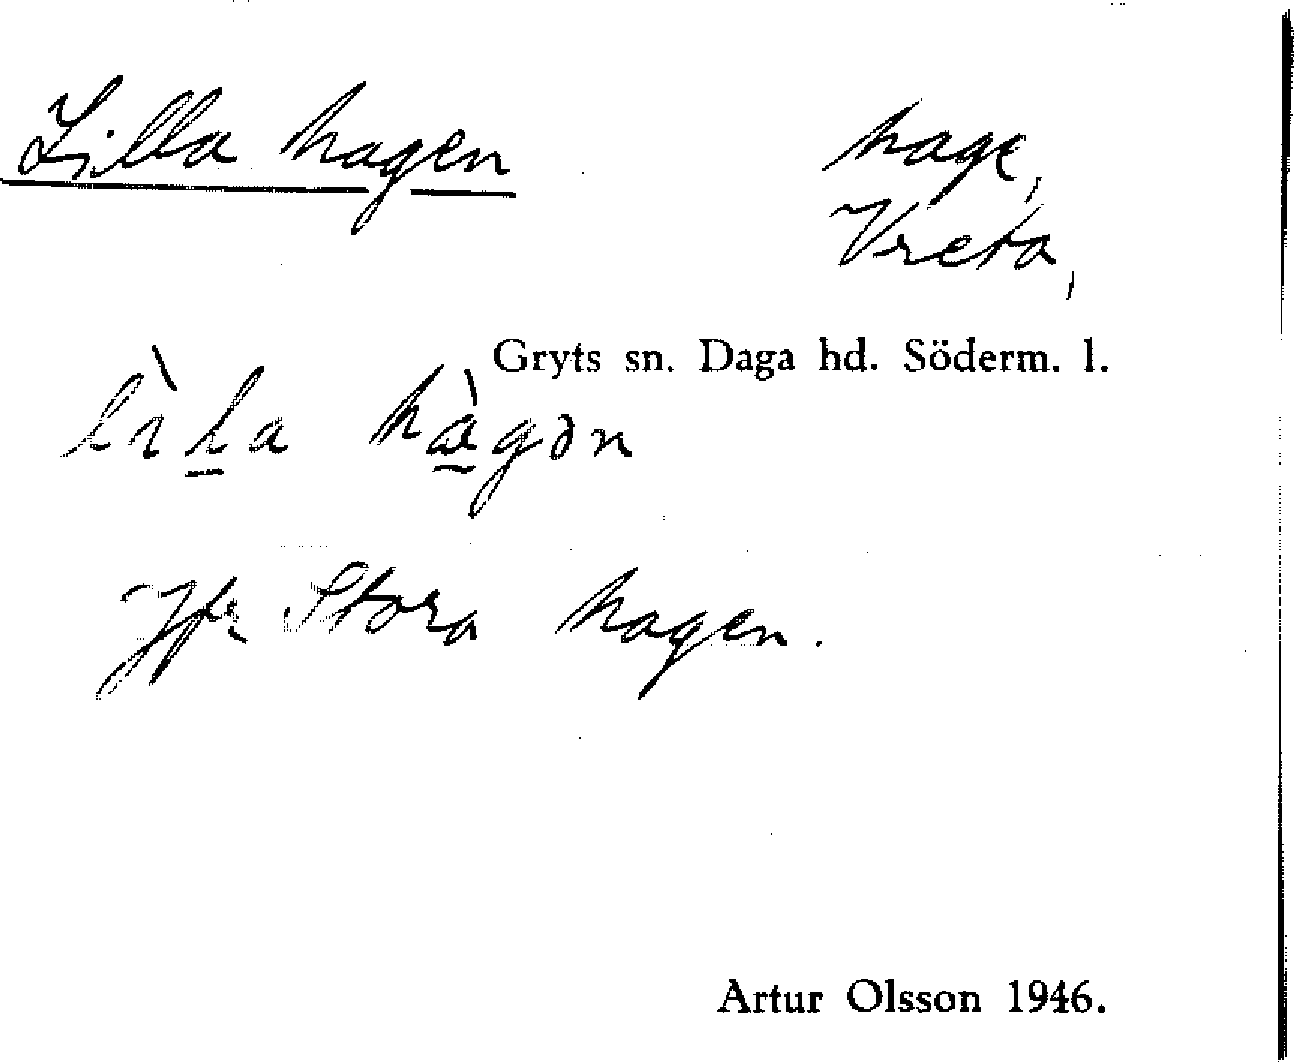 Lilla hagen
hage,
Vreta,
Gryts sn. Daga hd. Söderm. l.
lìl̲a hà̲gən
Jfr Stora hagen.
Artur Olsson 1946.